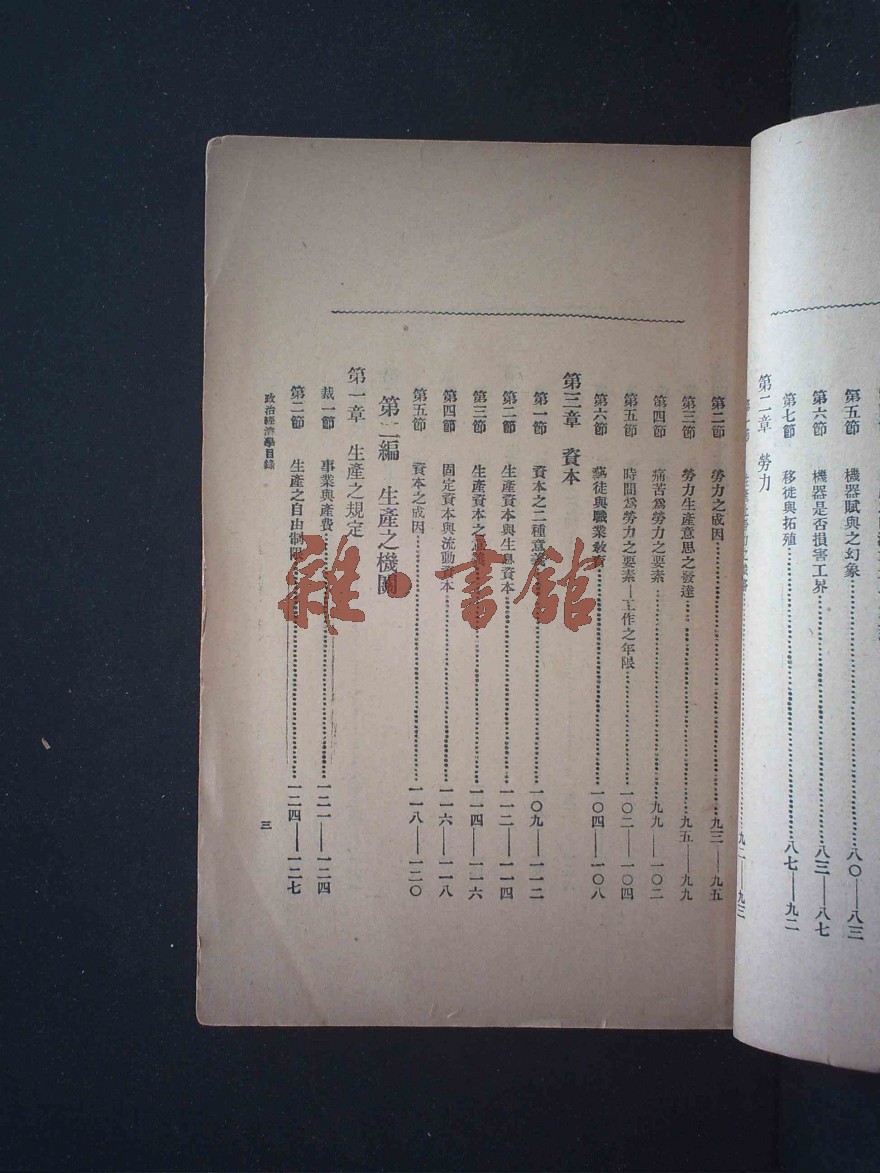 第五節 機器賦與之幻象……八〇——八三
第六節 機器是否損害工界……八三——八七
第七節 移徙與拓殖……八七——九二
第二章 勞力
九二——九三
第二節 勞力之成因……九三——九五
第三節 勞力生產意思之發達……九五——九九
第四節 痛苦爲勞力之要素……九九——一〇二
第五節 時間爲勞力之要素—工作之年限……一〇二——一〇四
第六節 藝徒與職業敎育……一〇四——一〇八
第三章 資本
第一節 資本之二種意義……一〇九——一一二
第二節 生產資本與生息資本……一一二——一一四
第三節 生產資本之……一一四——一一六
第四節 固定資本與流動資本……一一六——一一八
第五節 資本之成因……一一八——一二〇
第二編 生產之機關
第一章 生產之規定
裁一節 事業與產費……一二一——一二四
第二節 生產之自由制限……一二四——一二七
政治經濟學目錄
三
雜·書館